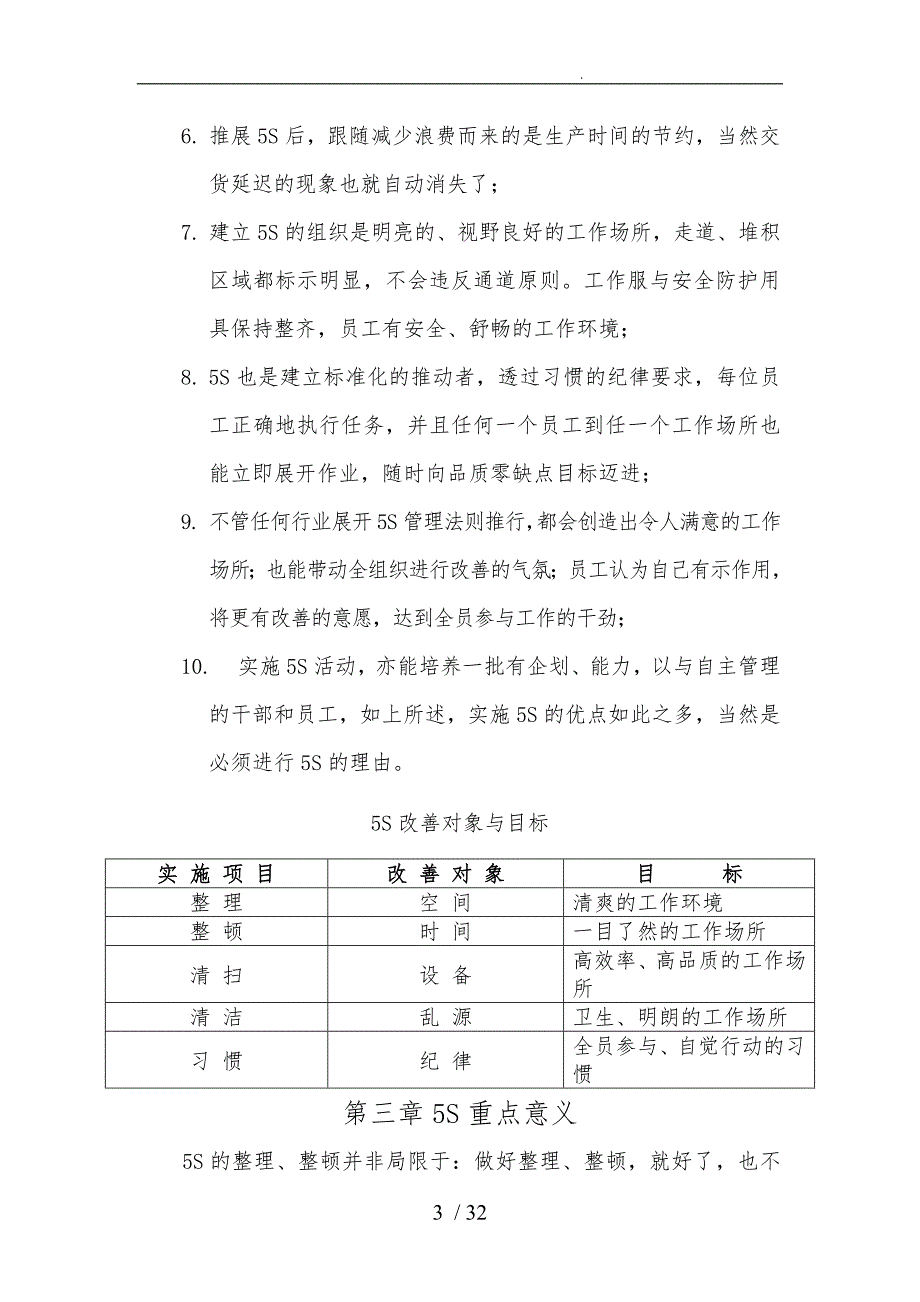 6. 推展 5S 后，跟随减少浪费而来的是生产时间的节约，当然交
货延迟的现象也就自动消失了；
7. 建立 5S 的组织是明亮的、视野良好的工作场所，走道、堆积
区域都标示明显，不会违反通道原则。工作服与安全防护用
具保持整齐，员工有安全、舒畅的工作环境；
8. 5S 也是建立标准化的推动者，透过习惯的纪律要求，每位员
工正确地执行任务，并且任何一个员工到任一个工作场所也
能立即展开作业，随时向品质零缺点目标迈进；
9. 不管任何行业展开 5S 管理法则推行，都会创造出令人满意的工作
场所；也能带动全组织进行改善的气氛；员工认为自己有示作用，
将更有改善的意愿，达到全员参与工作的干劲；
10. 实施 5S 活动，亦能培养一批有企划、能力，以与自主管理
的干部和员工，如上所述，实施 5S 的优点如此之多，当然是
必须进行 5S 的理由。
5S 改善对象与目标
实 施 项 目 改 善 对 象 目 标
整 理 空 间 清爽的工作环境
整 顿 时 间 一目了然的工作场所
清 扫 设 备 高效率、高品质的工作场
所
清 洁 乱 源 卫生、明朗的工作场所
习 惯 纪 律 全员参与、自觉行动的习
惯
第三章 5S 重点意义
5S 的整理、整顿并非局限于：做好整理、整顿，就好了，也不
3 / 32